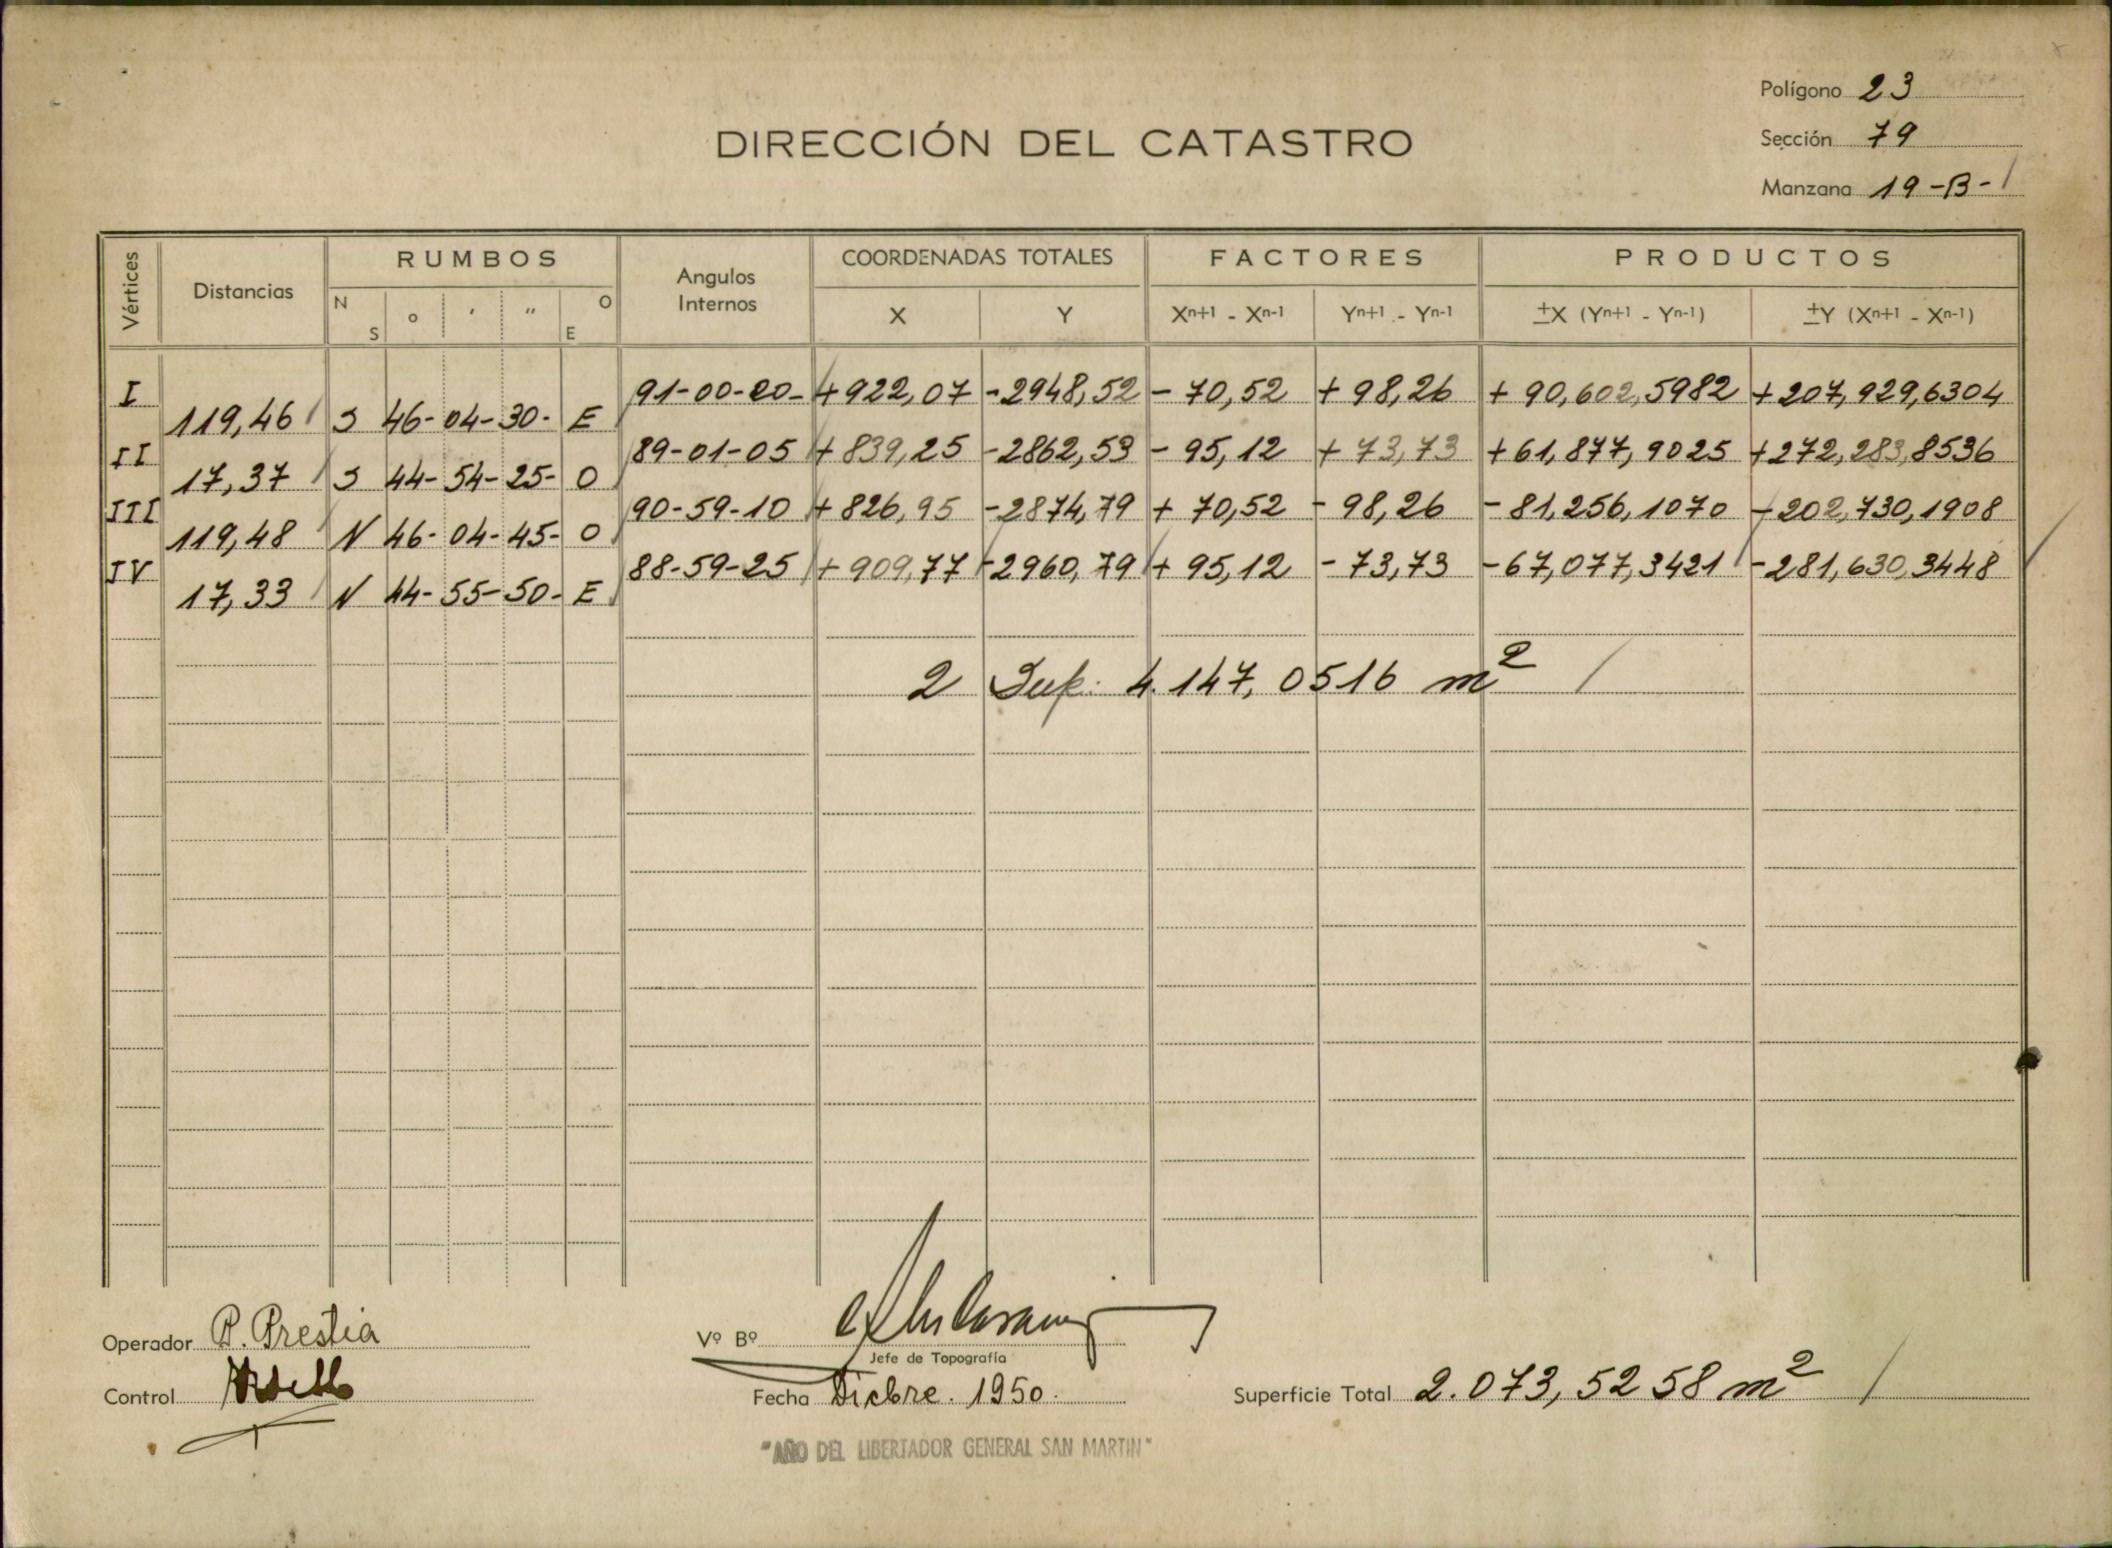 Polígono 23
DIRECCIÓN DEL CATASTRO
Sección 79
Manzana 19-B-
Vértices Distancias RUMBOS Angulos Internos COORDENADAS TOTALES FACTORES PRODUCTOS
N S o ' " O E X Y Xn+1 - Xn-1 Yn+1 - Yn-1 ±X (Yn+1 - Yn-1) ±Y (Xn+1 - Xn-1)
I 91-00-20- +922,07 -2948,52 - 70,52 + 98,26 + 90,602,5982 +207,929,6304
119,46 S 46-04-30- E
II 89-01-05 +839,25 -2862,53 - 95,12 + 73,73 +61,877,9025 +272,283,8536
17,37 S 44-54-25- O
III 90-59-10 +826,95 -2874,79 + 70,52 - 98,26 -81,256,1070 -202,730,1908
119,48 N 46-04-45- O
IV 88-59-25 +909,77 -2960,79 + 95,12 - 73,73 -67,077,3421 -281,630,3448
17,33 N 44-55-50- E
2 Sup. 4.147,0516 m2
Operador P. Prestia
Vº Bº
Jefe de Topografía
Control
Fecha Dicbre. 1950.
Superficie Total 2.073,5258 m2
"AÑO DEL LIBERTADOR GENERAL SAN MARTIN"